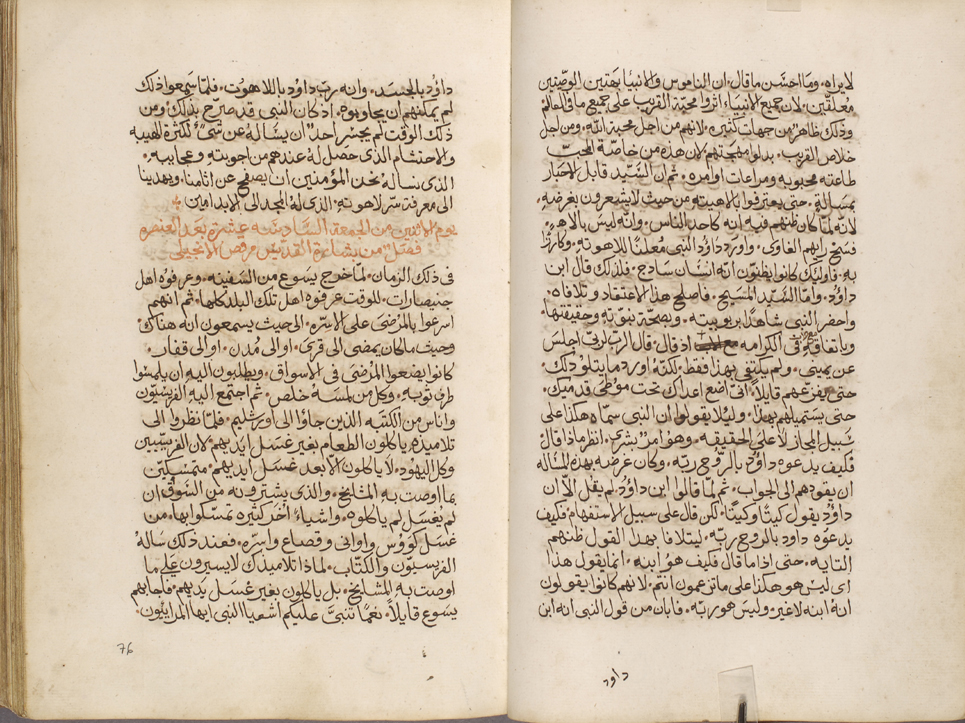 لا يراه. وما احسن ما قال. ان الناموس والانبيا بهتين الوصيتين
معلقين. لان جميع الانبياء اثروا محبة القريب على جميع ما في العالم
وذلك ظاهر من جهات كثيره. لانهم من اجل محبة الله. ومن اجل
خلاص القريب. بدلوا مهجتهم لان هذه من خاصة المحب
طاعته محبوبه ومراعات اوامره. ثم ان السيد قابل الاحبار
بمسالة. حتى يعترفوا بالاهيته من حيث لا يشعرون بغرضه.
لانه لما كان ظنهم فيه انه كاحد الناس. وانه ليس بالاه.
فسخ رايهم الغاوي. واورد داوود النبي معلنا للاهوته. وكارزا
به. فاوليك كانوا يظنون انه انسان سادج. فلذلك قال ابن
داوود. واما السيد المسيح. فاصلح هذا الاعتقاد وتلافاه.
واحضر النبي شاهدا بربوبيته. وبصحة بنوته وحقيقتها.
وباتفاقه في الكرامه مع اذ قال. قال الرب لربي اجلس
عن يميني. ولم يكتفي بهذا فقط. لكنه اورد ما يتلو ذلك.
حتى يفزعهم قايلا. اني اضع اعداك تحت موطي قدميك.
حتى يستميلهم بهذا. وليلا يقولوا ان النبي سماه هكذا على
سبيل المجاز لا على الحقيقه. وهو امر بشري. انظر ماذا قال.
فكيف يدعوه داوود بالروح ربه. وكان غرضه بهذه المساله
ان يقودهم الى الجواب. ثم لما قالوا ابن داوود لم يقل الا ان
داوود يقول كيتا وكيتا. لكن قال على سبيل الاستفهام. فكيف
يدعوه داود بالروح ربه. ليتلافا بهذا القول ظنهم
التايه. حتى اذا ما قال فكيف هو ابنه. انما يقول هذا
اي ليس هو هكذا على ما تزعمون انتم. لانهم كانوا يقولون
انه ابنه لا غير. وليس هو ربه. فابان من قول النبي انه ابن
داود
داوود بالجسد. وانه رب داوود باللاهوت. فلما سمعوا ذلك
لم يمكنهم ان يجاوبوه. اذ كان النبي قد صرح بذلك. ومن
ذلك الوقت لم يجسر احد ان يساله عن شيء لكثرة الهيبه
والاحتشام الذي حصل له عندهم من اجوبته وعجايبه.
الذي نساله نحن المؤمنين ان يصفح عن اثامنا. ويهدينا
الى معرفة سر لاهوته. الذي له المجد الى الابد امين
يوم الاثنين من الجمعه السادسه عشرة بعد العنصره
فصل من بشارة القديس مرقص الانجيلي
في ذلك الزمان. لما خرج يسوع من السفينه. وعرفوه اهل
جنيصارات. للوقت عرفوه اهل تلك البلد كلها. ثم انهم
اسرعوا بالمرضى على الاسره. الى حيث يسمعون انه هناك.
وحيث ما كان يمضي الى قرى. او الى مدن. او الى قفار.
كانوا يضعوا المرضى في الاسواق. ويطلبون اليه ان يلمسوا
طرف ثوبه. وكل من لمسه خلص. ثم اجتمع اليه الفريسيون
واناس من الكتبه الذين جاؤا الى اورشليم. فلما نظروا الى
تلاميذه ياكلون الطعام بغير غسل ايديهم لان الفريسيين
وكل اليهود. لا ياكلون الا بعد غسل ايديهم. متمسكين
بما اوصت به المشايخ. والذي يشترونه من السوق ان
لم يغسل لم ياكلوه. واشياء اخر كثيره تمسكوا بها. من
غسل كووس واواني وقصاع واسره. فعند ذلك ساله
الفريسيون والكتاب. لماذا تلاميذك لا يسيرون على ما
اوصت به المشايخ. بل ياكلون بغير غسل يديهم. فاجابهم
يسوع قايلا. نعما تنبى عليكم اشعيا النبي ايها المراييون.
76